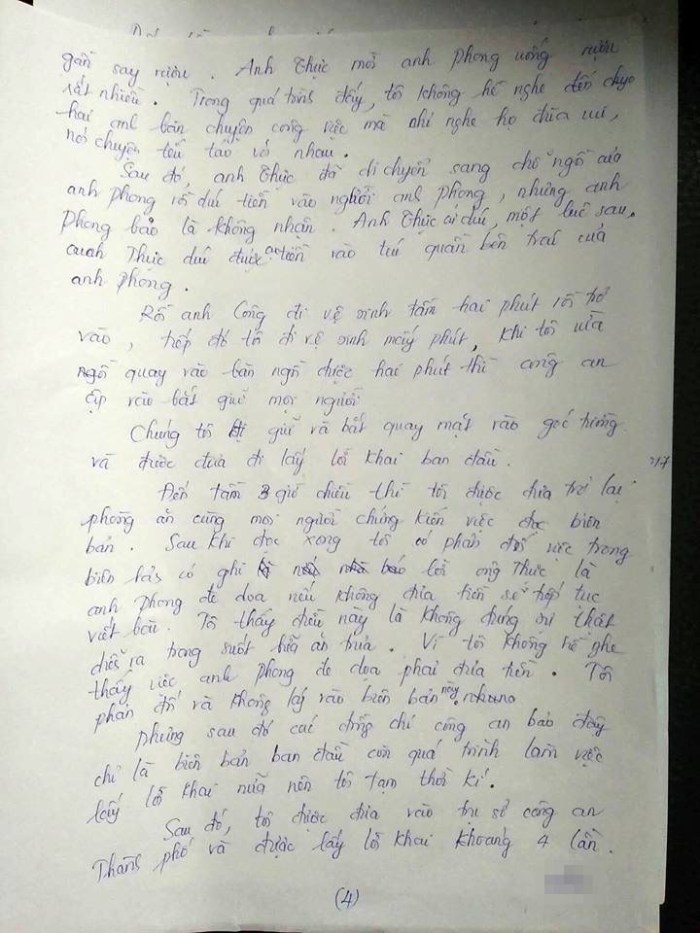 gần say rượu. Anh Thực mời anh Phong uống rượu
rất nhiều. Trong quá trình đấy, tôi không hề nghe đến chuyện
hai anh bàn chuyện công việc mà chỉ nghe họ đùa vui,
nói chuyện tếu táo với nhau.
Sau đó, anh Thực đã di chuyển sang chỗ ngồi của
anh Phong rồi dúi tiền vào người anh Phong, nhưng anh
Phong bảo là không nhận. Anh Thực cứ dúi, một lúc sau,
anh Thực dúi được tiền vào túi quần bên trái của
anh Phong.
Rồi anh Công đi vệ sinh tầm hai phút rồi trở
vào, tiếp đó tôi đi vệ sinh mấy phút, khi tôi vừa
ngồi quay vào bàn ngồi được hai phút thì công an
ập vào bắt giữ mọi người.
Chúng tôi bị giữ và bắt quay mặt vào góc tường
và được đưa đi lấy lời khai ban đầu.
Đến tầm 3 giờ chiều thì tôi được đưa trở lại
phòng ăn cùng mọi người chứng kiến việc đọc biên
bản. Sau khi đọc xong tôi có phản đối việc trong
biên bản có ghi lời ông Thực là
anh Phong đe dọa nếu không đưa tiền sẽ tiếp tục
viết bài. Tôi thấy điều này là không đúng sự thật
diễn ra trong suốt bữa ăn trưa. Vì tôi không hề nghe
thấy việc anh Phong đe dọa phải đưa tiền. Tôi
phản đối và không ký vào biên bản này.
Nhưng sau đó các đồng chí công an bảo đây
chỉ là biên bản ban đầu còn quá trình làm việc
lấy lời khai nữa nên tôi tạm thời kí.
Sau đó, tôi được đưa vào trụ sở công an
Thành phố và được lấy lời khai khoảng 4 lần.
(4)